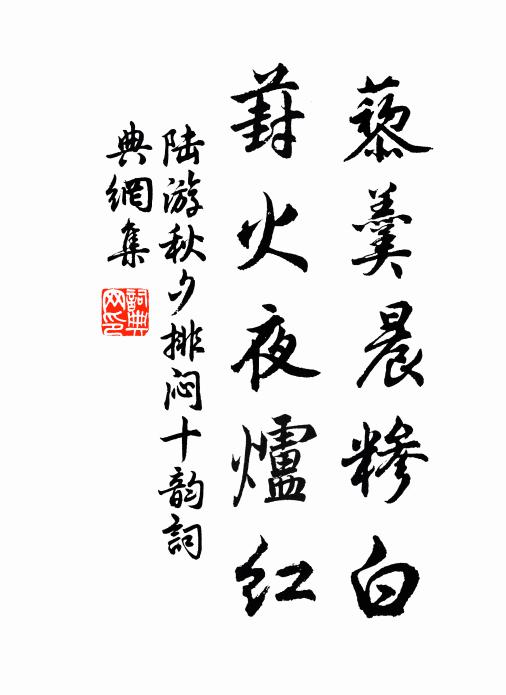 藜羹晨糁白
葑火夜爐红
陆游秋夕排闷十韵詞
典網集
詞典
网印